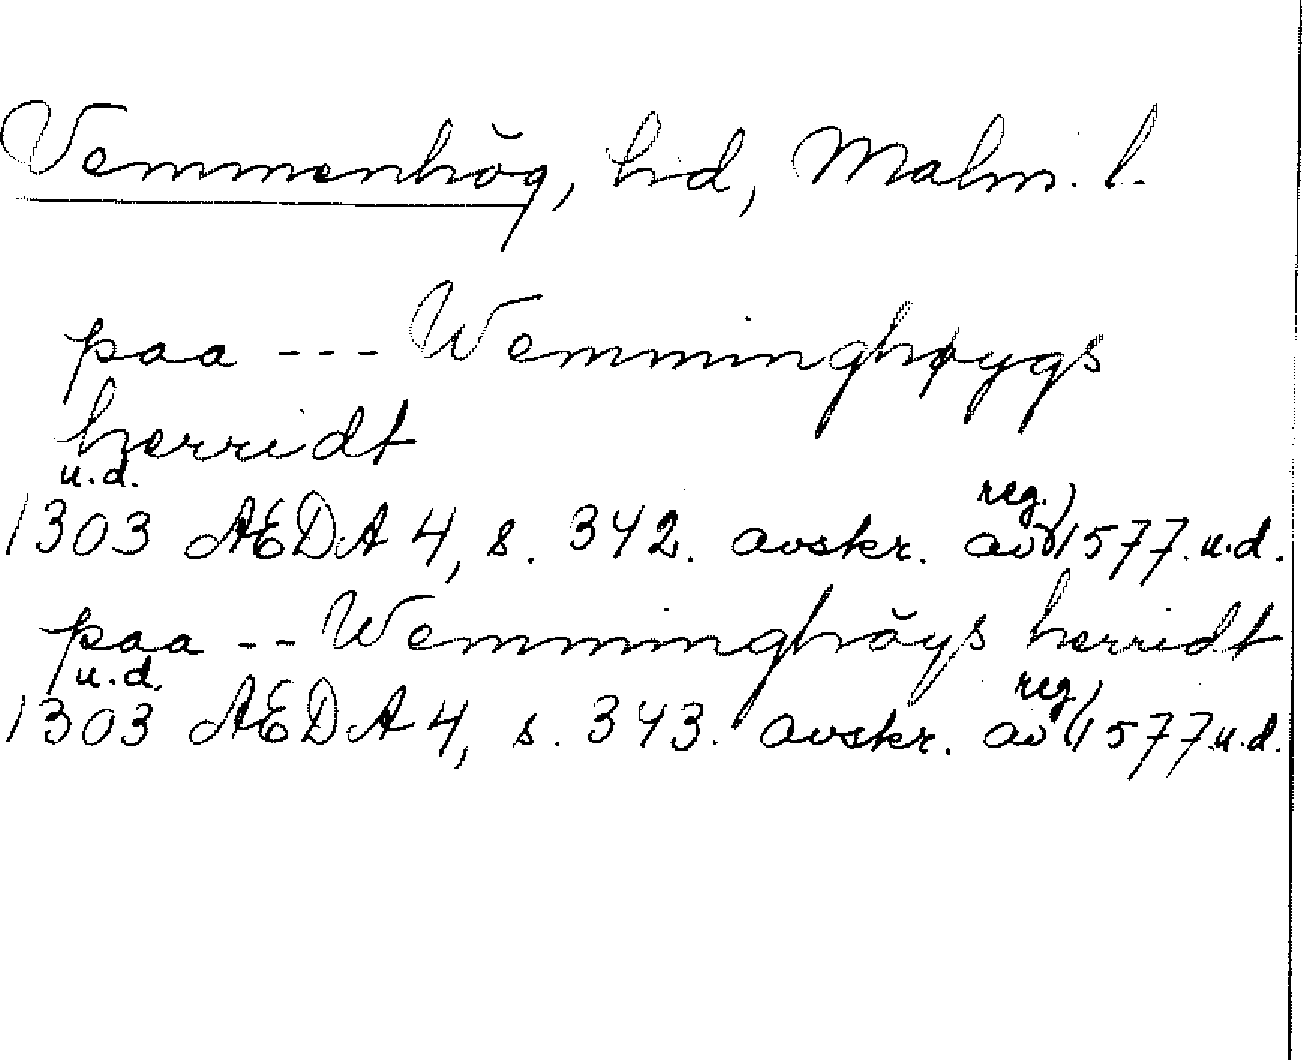 Vemmenhög, hd, Malm. l.
paa --- Wemminghøygs
herridt
u.d.
1303 AEDA 4, s. 342. avskr. av reg. 1577 u.d.
paa -- Wemminghöys herridt
u.d.
1303 AEDA 4, s. 343. avskr. av reg. 1577 u.d.